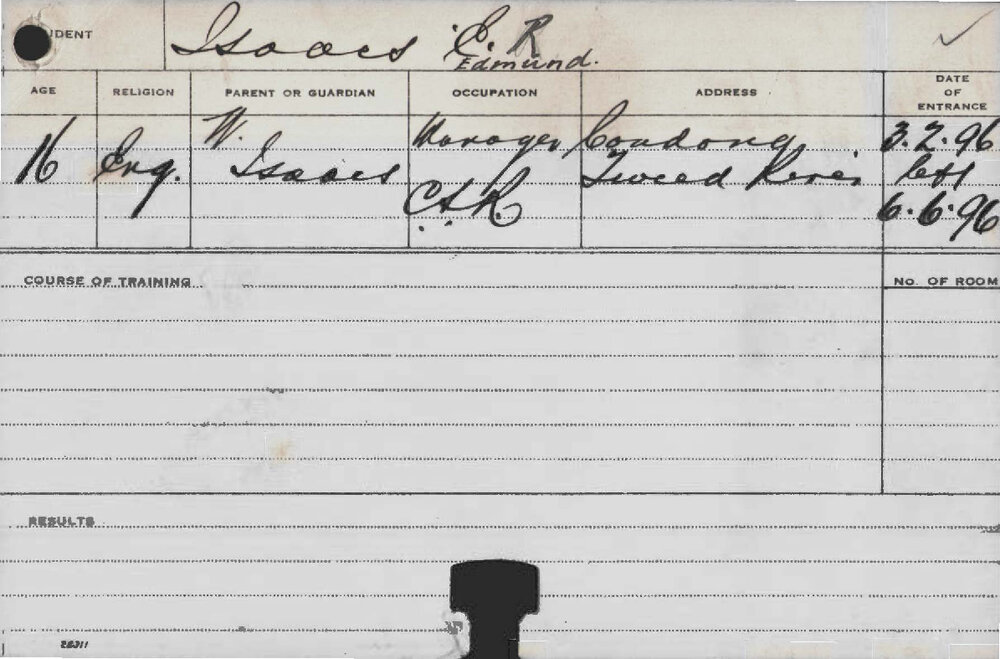 UDENT Isaacs E. R
Edmund.
AGE RELIGION PARENT OR GUARDIAN OCCUPATION ADDRESS DATE OF ENTRANCE
16 Eng. W. Isaacs Manager CSR Condong Tweed River 3.2.96 left 6.6.96
COURSE OF TRAINING NO. OF ROOM
RESULTS